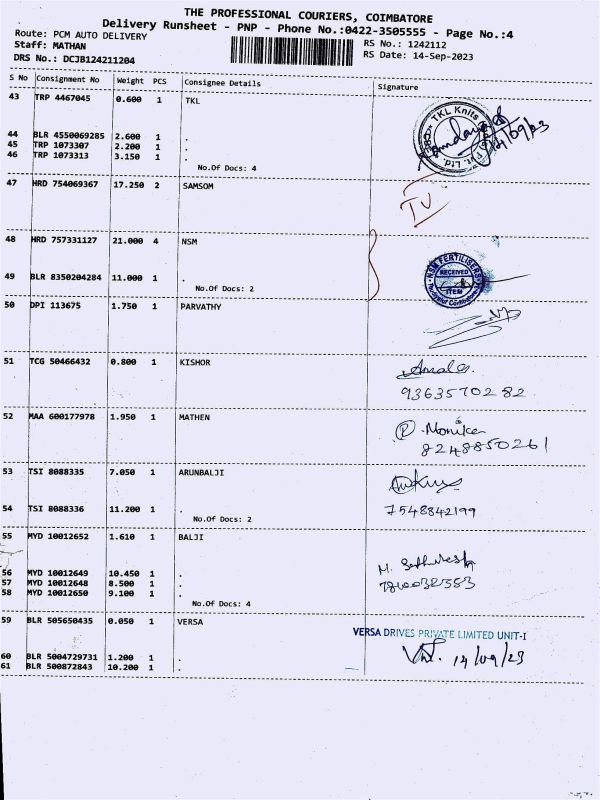 THE PROFESSIONAL COURIERS, COIMBATORE
Delivery Runsheet - PNP - Phone No.:0422-3505555 - Page No.:4
Route: PCM AUTO DELIVERY
Staff: MATHAN
RS No.: 1242112
DRS No.: DCJB124211204
RS Date: 14-Sep-2023
S No Consignment No Weight PCS Consignee Details Signature
43 TRP 4467045 0.600 1 TKL
TKL Knits
14/09/23
44 BLR 4550069285 2.600 1 .
45 TRP 1073307 2.200 1 .
46 TRP 1073313 3.150 1 .
No.Of Docs: 4
47 HRD 754069367 17.250 2 SAMSOM
48 HRD 757331127 21.000 4 NSM
NSM FERTILISERS
RECEIVED
ITEM
49 BLR 8350204284 11.000 1 .
No.Of Docs: 2
50 DPI 113675 1.750 1 PARVATHY
51 TCG 50466432 0.800 1 KISHOR
9363570282
52 MAA 600177978 1.950 1 MATHEN
Monika
8248850261
53 TSI 8088335 7.050 1 ARUNBALJI
54 TSI 8088336 11.200 1 .
7548842199
No.Of Docs: 2
55 MYD 10012652 1.610 1 BALJI
56 MYD 10012649 10.450 1 .
57 MYD 10012648 8.500 1 .
58 MYD 10012650 9.100 1 .
No.Of Docs: 4
59 BLR 505650435 0.050 1 VERSA
VERSA DRIVES PRIVATE LIMITED UNIT-I
14/09/23
60 BLR 5004729731 1.200 1 .
61 BLR 500872843 10.200 1 .